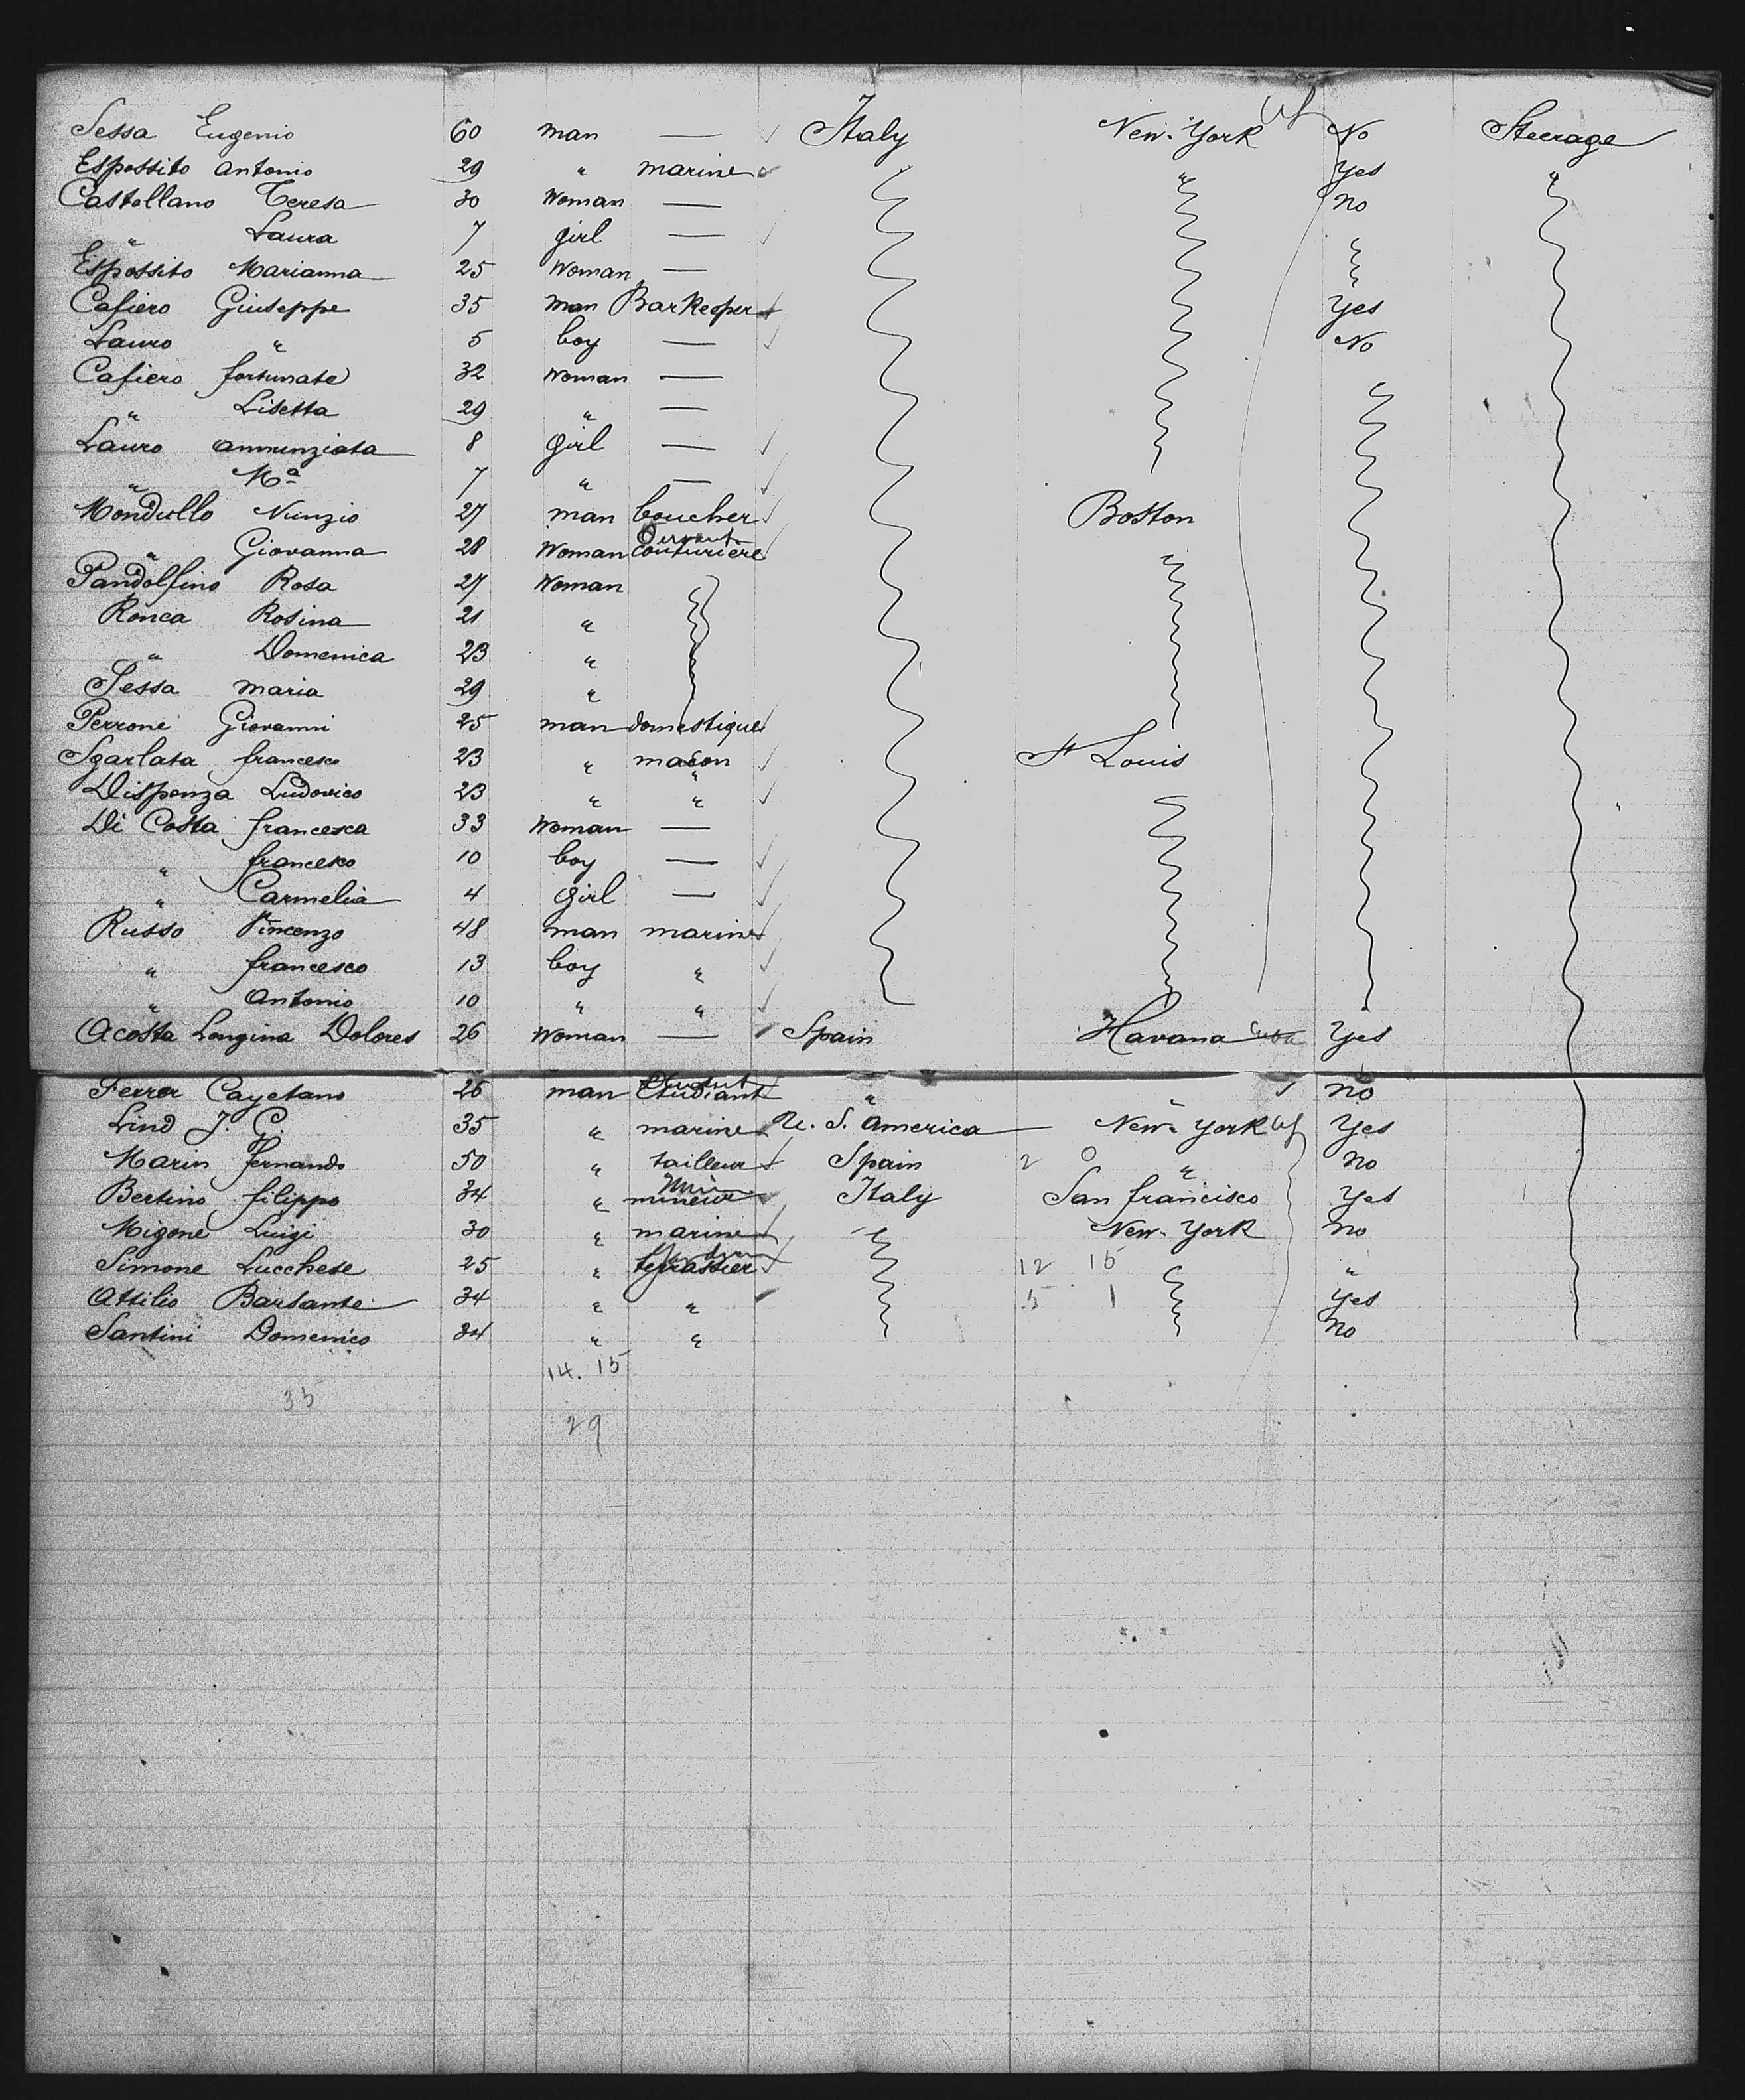 Sessa Eugenio 60 man — Italy New-York No Steerage
Espossito Antonio 29 " marine Yes "
Castellano Teresa 30 Woman — " no
" Laura 7 girl — "
Espossito Marianna 25 Woman —
Cafiero Giuseppe 35 man BarKeeper Yes
Lauro " 5 boy — No
Cafiero fortunate 32 Woman —
" Lisetta 29 " —
Lauro annunziata 8 girl —
" Mª 7 " —
Mondullo Nunzio 27 man boucher Boston
" Giovanna 28 Woman couturière
Pandolfino Rosa 27 Woman
Ronca Rosina 21 "
" Domenica 23 "
Sessa maria 29 "
Perrone Giovanni 25 man domestique
Sgarlata francesco 23 " macon St Louis
Dispenza Ludovico 23 " "
Di Costa francesca 33 Woman —
" francesco 10 boy —
" Carmelia 4 girl —
Russo Vincenzo 48 man marine
" francesco 13 boy "
" Antonio 10 " "
Acosta Longina Dolores 26 Woman — Spain Havana Cuba Yes
Ferrer Cayetano 26 man Etudiant " " no
Lind J. G. 35 " marine U. S. America New-York Yes
Marin fernando 50 " tailleur Spain 2 0 " no
Bertino filippo 34 " mineur Italy San francisco Yes
Migone Luigi 30 " marine New-York no
Simone Lucchese 25 " terrassier 12 15 "
Attilio Barsante 34 " " 5 1 Yes
Santini Domenico 34 " " no
14. 15
35
29